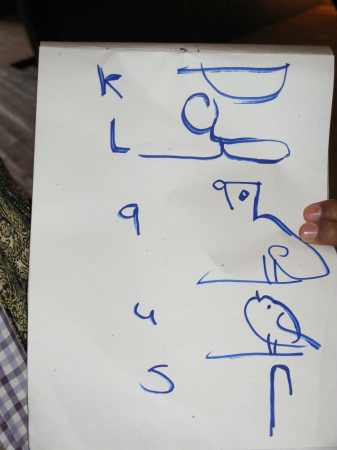 K
L
a
u
S